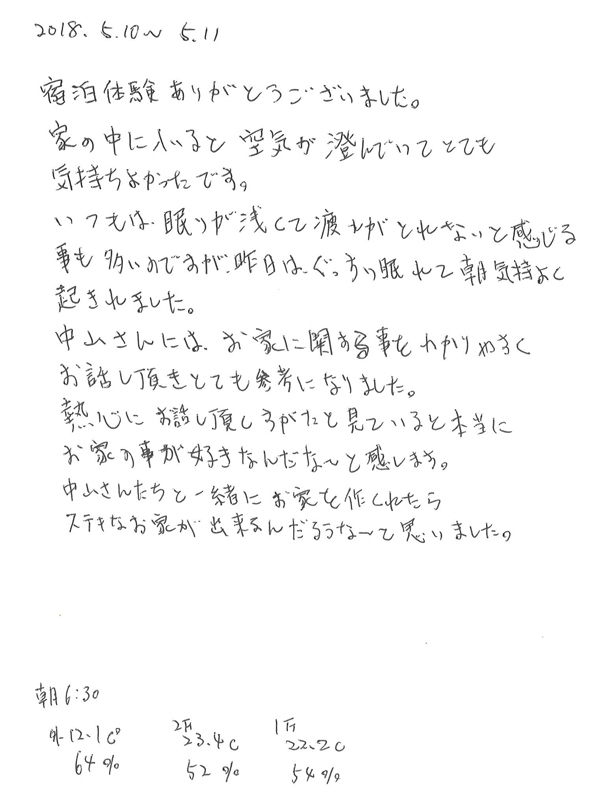 2018. 5.10〜 5.11
宿泊体験ありがとうございました。
家の中にいると 空気が 澄んでいてとても
気持ちよかったです。
いつもは、眠りが浅くて疲れがとれないと感じる
事も 多いのですが、昨日は、ぐっすり眠れて朝気持よく
起きれました。
中山さんには、お家に関する事をわかりやすく
お話し頂きとても参考になりました。
熱心に お話し頂くすがたを見ていると本当に
お家の事が好きなんだな〜と感します。
中山さんたちと一緒にお家を作くれたら
ステキなお家が出来るんだろうな〜と思いました。
朝6:30
外12.1C° 2F 23.4C 1F 22.2C
64% 52% 54%